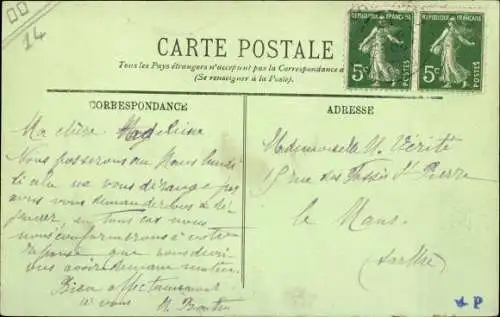 14
CARTE POSTALE
Tous les Pays étrangers n'acceptent pas la Correspondance a
(Se renseigner à la Poste).
REPUBLIQUE FRANÇAISE
5c
POSTES
REPUBLIQUE FRANÇAISE
5c
POSTES
CORRESPONDANCE
Ma chère
Nous passerons au Mans lundi
si cela ne vous dérange pas
nous vous demanderons à dé-
jeuner, en tout cas nous
nous conformerons à votre
réponse que nous
demain matin.
Bien affectueusement
à vous M.
ADRESSE
Mademoiselle M. Vérité
rue des Fossés St Pierre
Le Mans
Sarthe
P